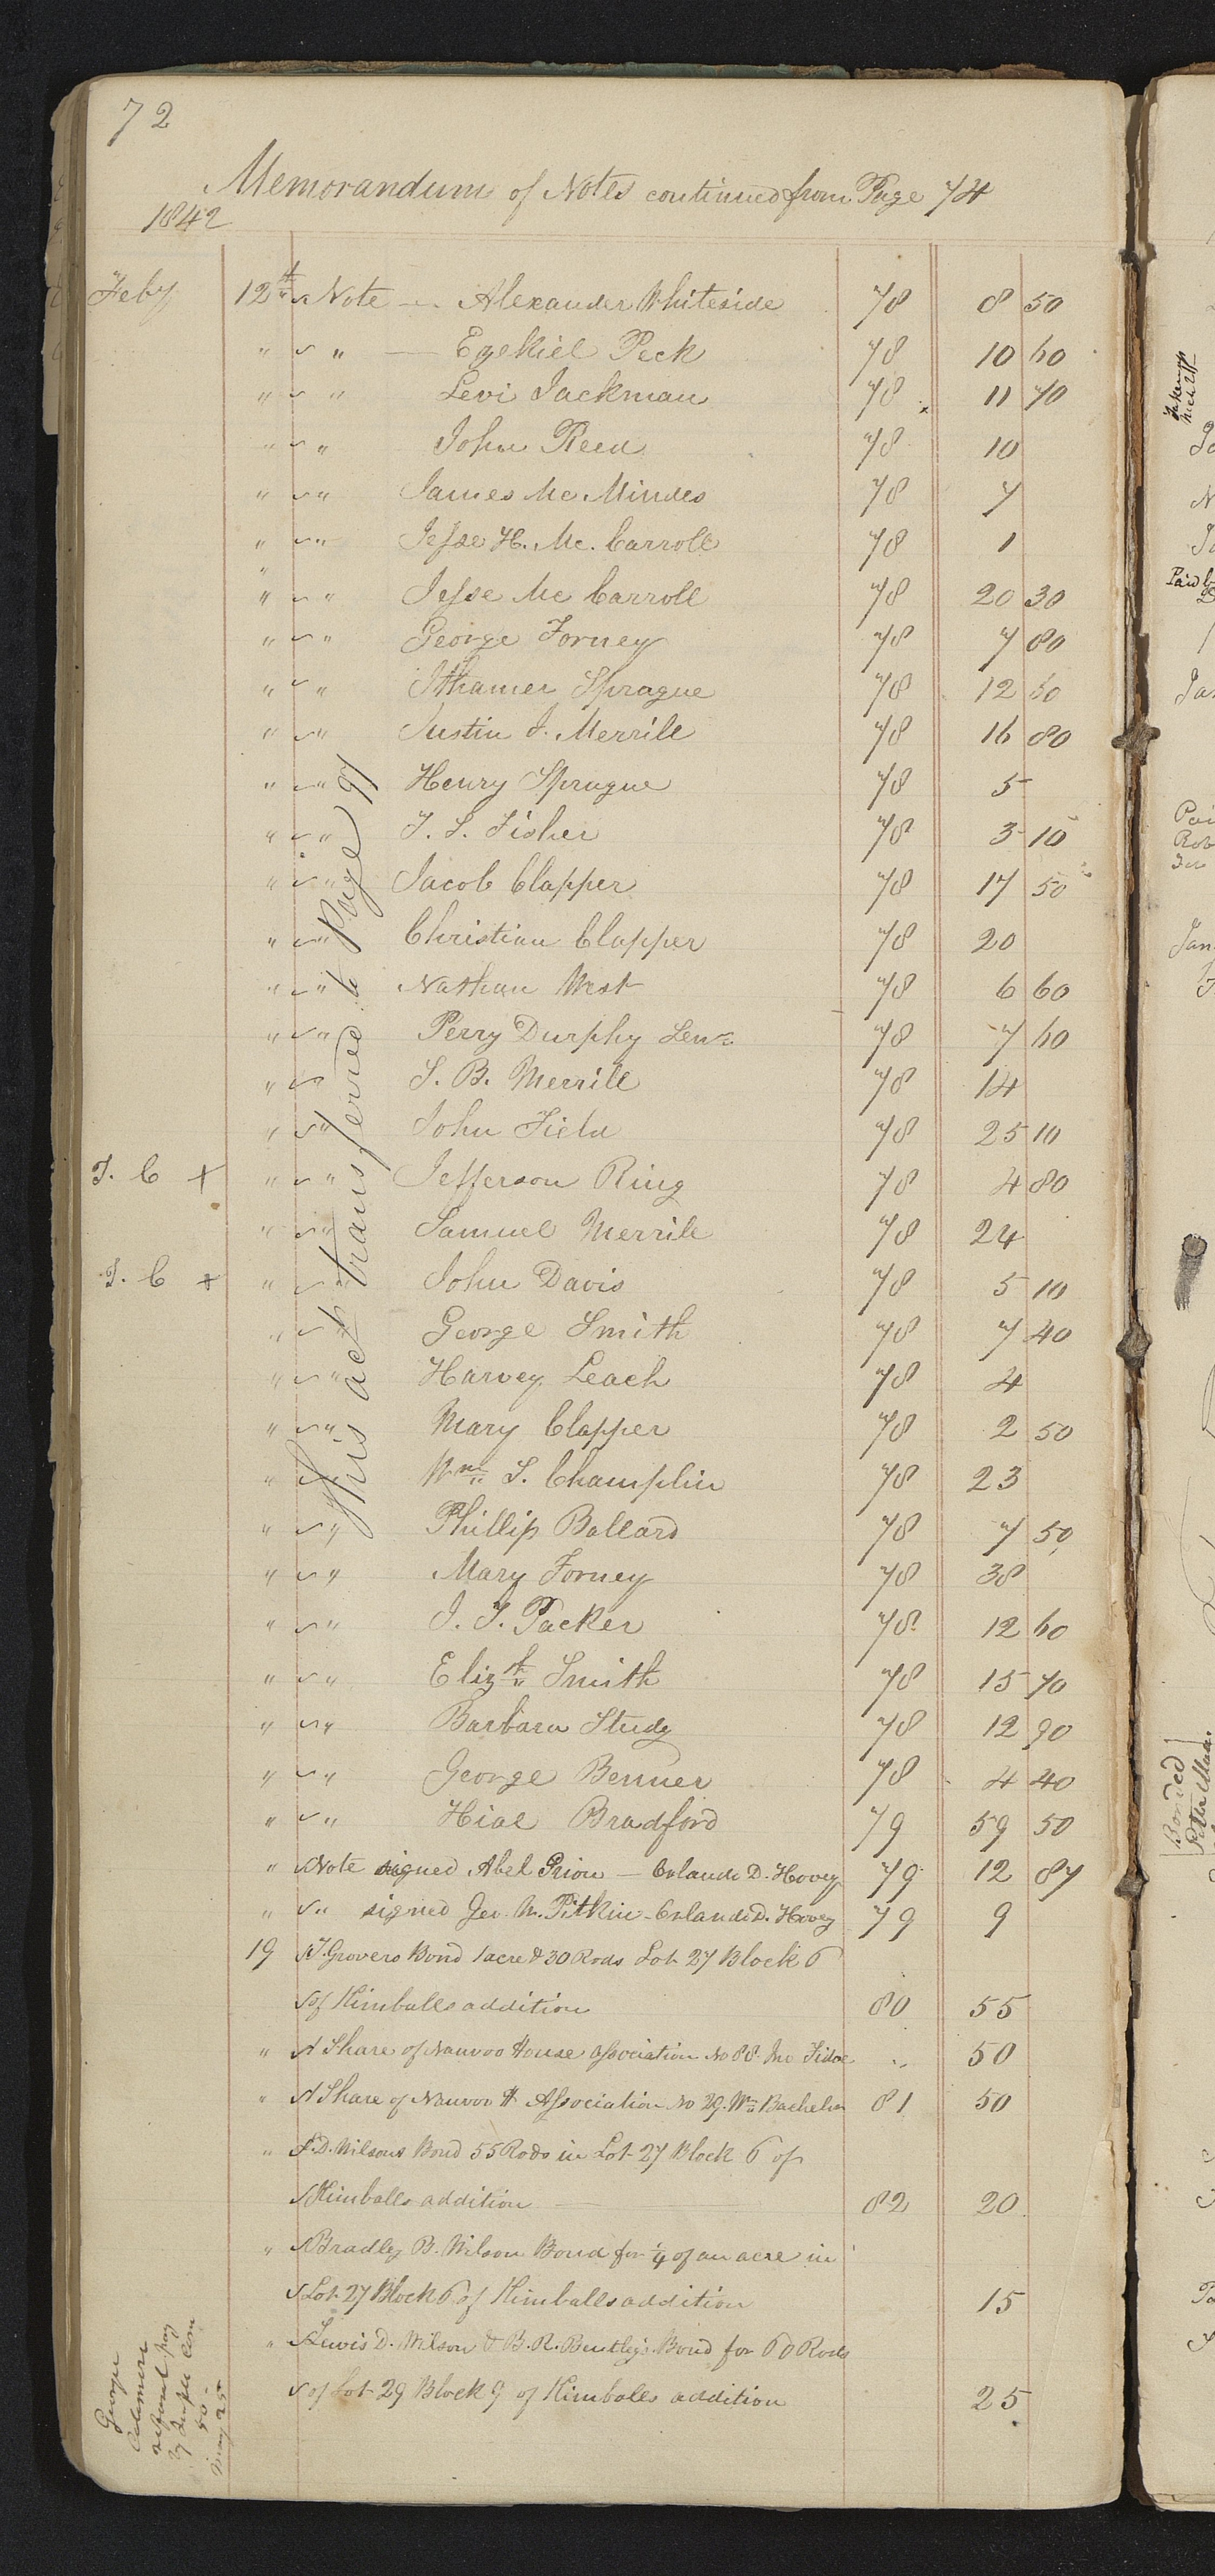 72
Memorandum of Notes continued from Page 74
1842
Feby 12th " Note — Alexander Whiteside 78 8 50
" " — Ezekiel Peck 78 10 60
" " Levi Jackman 78 11 70
" " John Reed 78 10
" " James Mc. Mindes 78 7
" " Jesse H. Mc. Carroll 78 1
" " Jesse Mc Carroll 78 20 30
" " George Forney 78 7 80
" " Ithamer Sprague 78 12 60
" " Justin J. Merrill 78 16 80
" " Henry Sprague 78 5
" " T. S. Fisher 78 3 10
" " Jacob Clapper 78 17 50
" " Christian Clapper 78 20
" " Nathan West 78 6 60
" " Perry Durphy Senr 78 7 60
" " S. B. Merrill 78 14
" " John Field 78 25 10
T. C + " " Jefferson Ring 78 4 80
" " Samuel Merrill 78 24
T. C + " " John Davis 78 5 10
" " George Smith 78 7 40
" " Harvey Leach 78 4
" " Mary Clapper 78 2 50
" " Wm S. Champlin 78 23
" " Phillip Ballard 78 7 50
" " Mary Forney 78 38
" " J. T. Packer 78 12 60
" " Elizth Smith 78 15 70
" " Barbara Study 78 12 90
" " George Benner 78 4 40
" " Hial Bradford 79 59 50
" Note signed Abel Prior — Orlando D. Hovey 79 12 87
" " signed Geo. W. Pitkin - Orlando D. Hovey 79 9
19 T. Grovers Bond 1 acre & 30 Rods Lot 27 Block 6
of Kimballs addition 80 55
" A Share of Nauvoo House Association No 88. Jno 50
" A Share of Nauvoo H Association No 29. Wm Bachelor 81 50
" D. Wilsons Bond 55 Rods in Lot 27 Block 6 of
Kimballs addition 82 20
" Bradley B. Wilson Bond for 1/4 of an acre in
Lot 27 Block 6 of Kimballs addition 15
" Lewis D. Wilson & B. R. Bentley's Bond for 60 Rods
of Lot 29 Block 9 of Kimballs addition 25
This act transferred to Page 97
George
refused pay
by Temple Com
50
May 25
Bonded